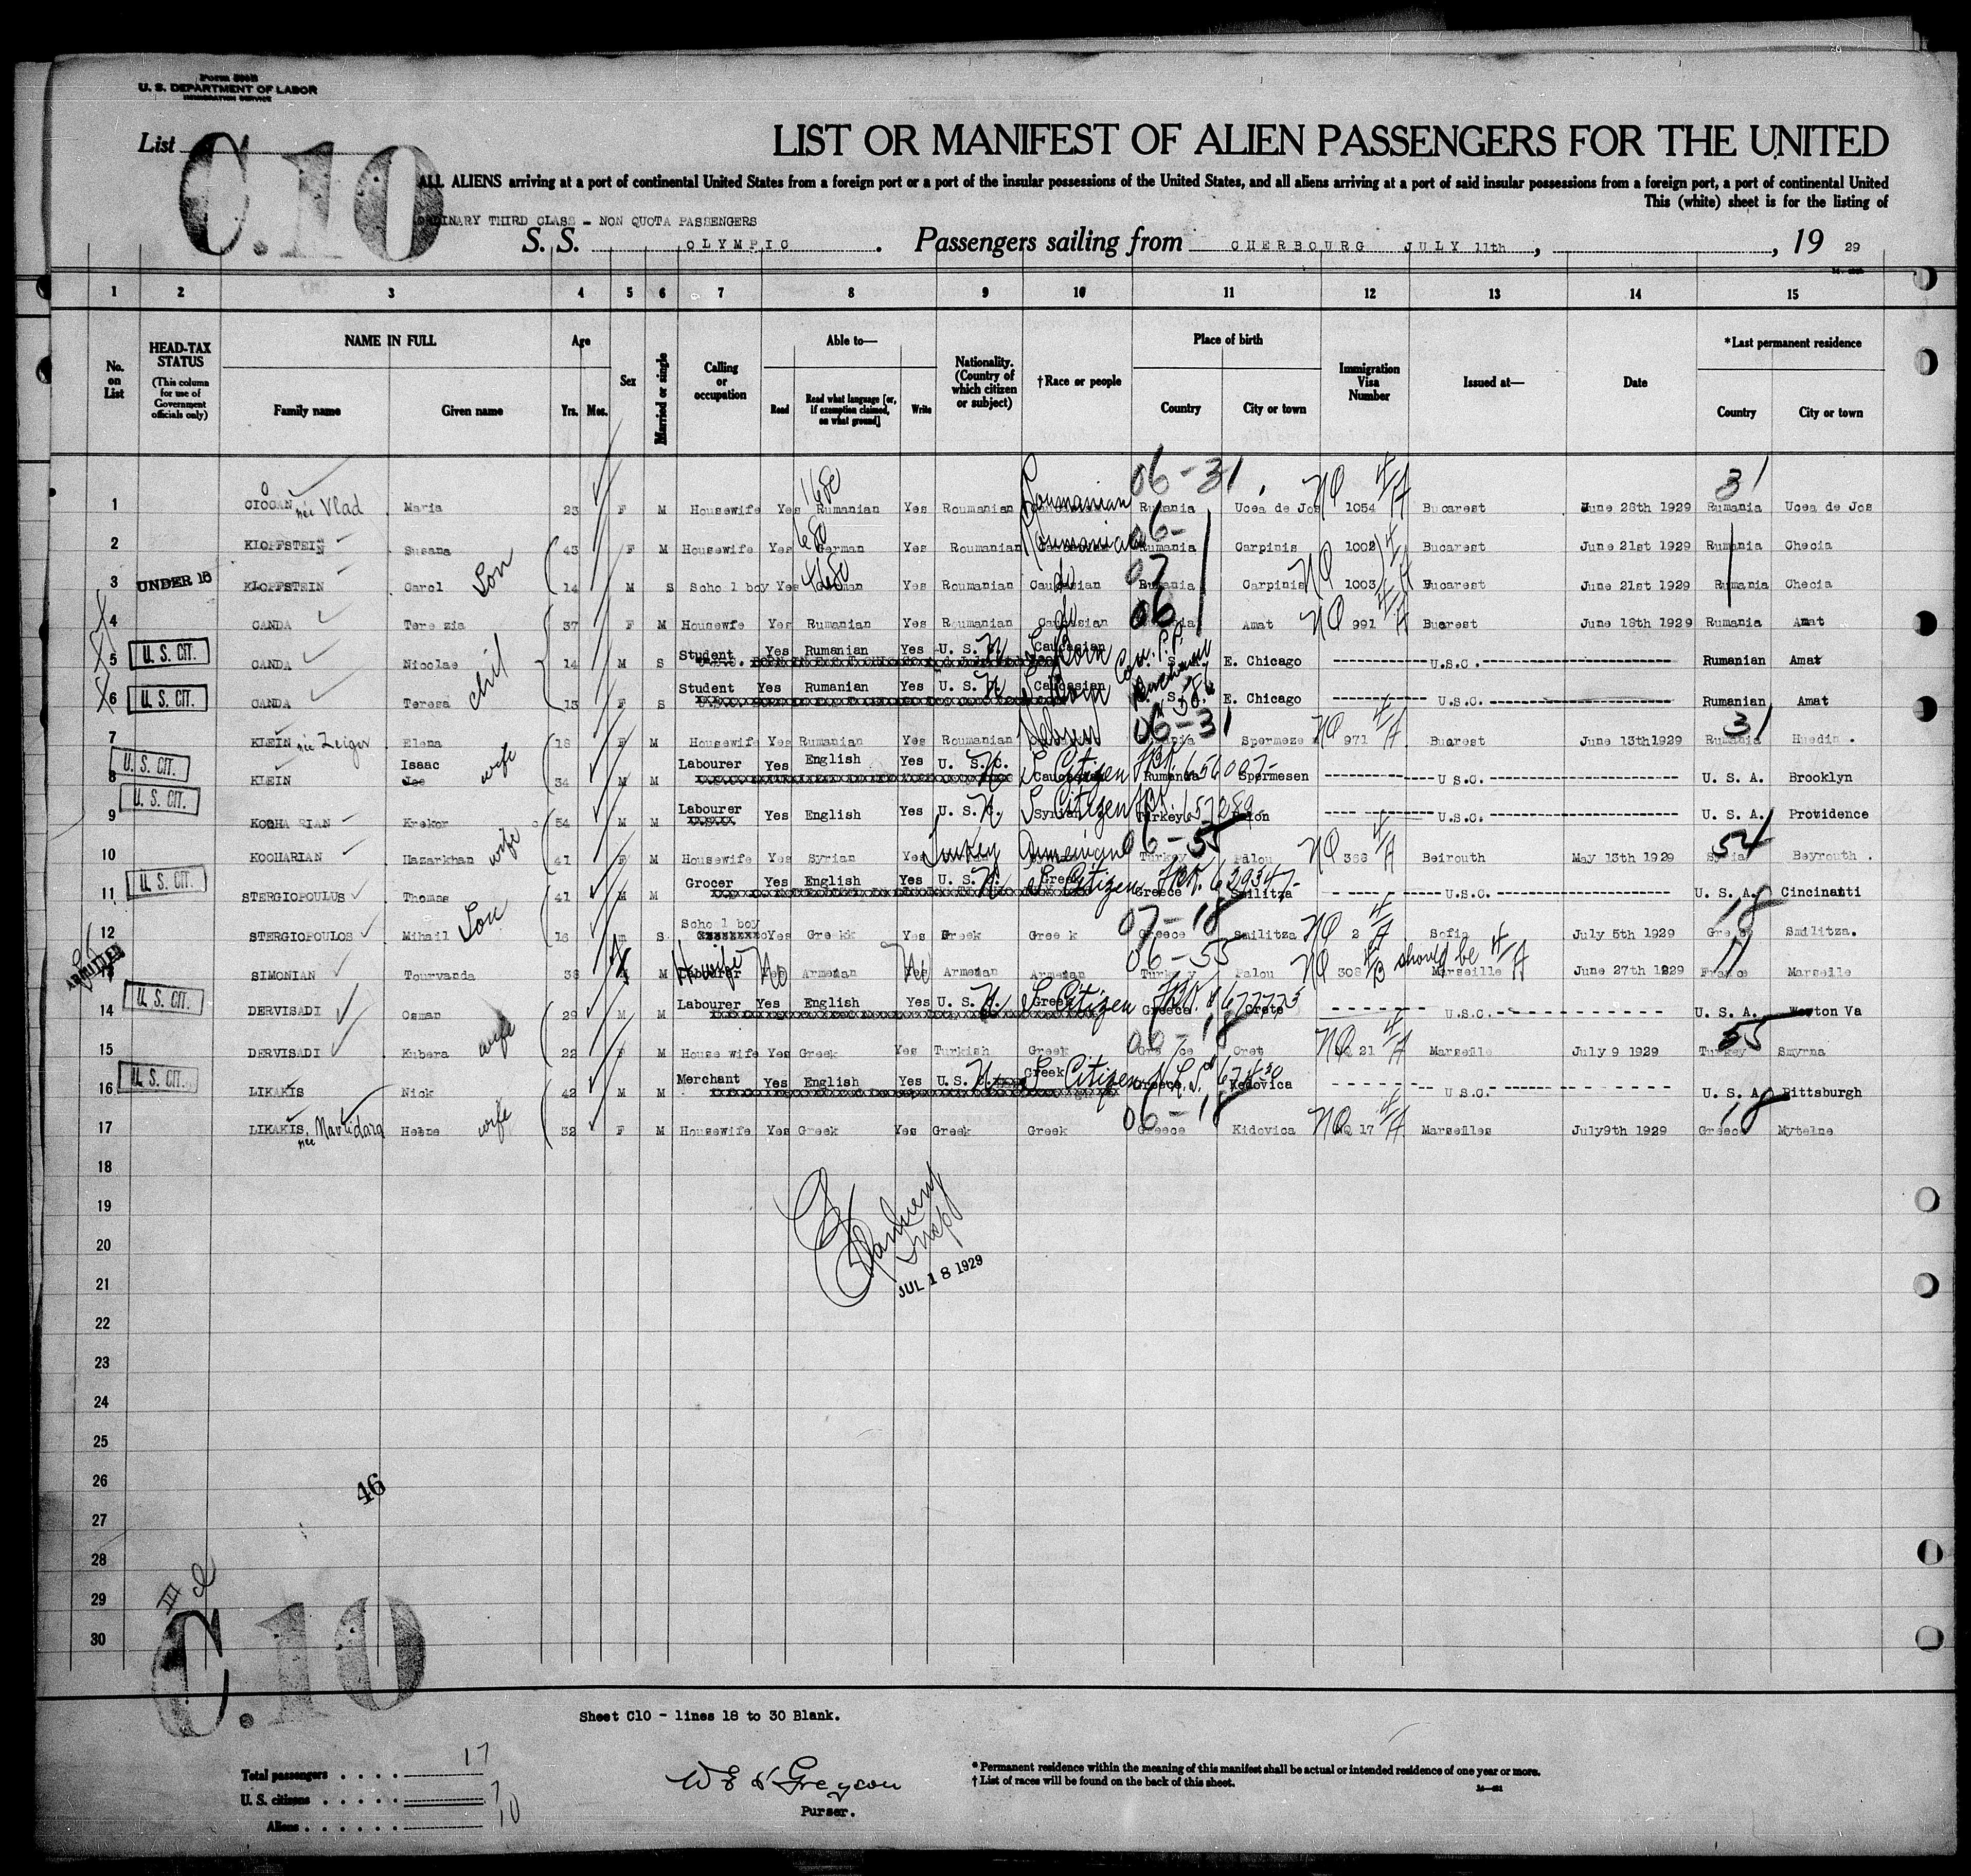 Form 500B
U. S. DEPARTMENT OF LABOR
IMMIGRATION SERVICE
List C.10
LIST OR MANIFEST OF ALIEN PASSENGERS FOR THE UNITED
ALL ALIENS arriving at a port of continental United States from a foreign port or a port of the insular possessions of the United States, and all aliens arriving at a port of said insular possessions from a foreign port, a port of continental United
This (white) sheet is for the listing of
ORDINARY THIRD CLASS - NON QUOTA PASSENGERS
S. S. OLYMPIC. Passengers sailing from CHERBOURG JULY 11th, , 19 29
1 2 3 4 5 6 7 8 9 10 11 12 13 14 15
No. on List
HEAD-TAX STATUS (This column for use of Government officials only)
NAME IN FULL
Family name Given name
Age
Yrs. Mos.
Sex
Married or single
Calling or occupation
Able to—
Read Read what language [or, if exemption claimed, on what ground] Write
Nationality. (Country of which citizen or subject)
†Race or people
Place of birth
Country City or town
Immigration Visa Number
Issued at—
Date
*Last permanent residence
Country City or town
1 CIOCAN née Vlad Maria 23 F M Housewife Yes Rumanian Yes Roumanian Roumanian 06-31 Rumania Ucea de Jos NQ 1054 Bucarest June 28th 1929 31 Rumania Ucea de Jos
2 KLOPFSTEIN Susana 43 F M Housewife Yes German Yes Roumanian Roumanian 06- Rumania Carpinis 1002 Bucarest June 21st 1929 Rumania Checia
3 UNDER 16 KLOPFSTEIN Carol Son 14 M S Scho l boy Yes German Yes Roumanian Caucasian do 07 Rumania Carpinis NQ 1003 Bucarest June 21st 1929 Rumania Checia
4 CANDA Terezia 37 F M Housewfe Yes Rumanian Yes Roumanian Caucasian do 06 Amat NQ 991 Bucarest June 18th 1929 Rumania Amat
5 U. S. CIT. CANDA Nicolae chil 14 M S Student Yes Rumanian Yes U. S. N Caucasian Born E. Chicago U.S.C. Rumanian Amat
6 U. S. CIT. CANDA Teresa 13 F S Student Yes Rumanian Yes U. S. N Caucasian Born E. Chicago U.S.C. Rumanian Amat
7 KLEIN née Zeiger Elena 18 F M Housewife Yes Rumanian Yes Roumanian Hebrew 06-31 Spermeze NQ 971 Bucarest June 13th1929 31 Rumania Huedin .
8 U. S. CIT. KLEIN Isaac wife 34 M M Labourer Yes English Yes U. S. C. Caucasian Citizen Rumania Spermesen U S.C. U. S. A. Brooklyn
9 U. S. CIT. KOCHARIAN Krekor 54 M M Labourer Yes English Yes U. S. C. Syrian Citizen Turkey U.S.C. U. S. A. Providence
10 KOCHARIAN Hazarkhan wife 41 F M Housewife Yes Syrian Yes Turkey 06-55 Turkey Palou NQ 366 Beirouth May 13th 1929 54 Syria Beyrouth .
11 U. S. CIT. STERGIOPOULUS Thomas 41 M M Grocer Yes English Yes U. S. C. Greek Citizen Greece Smilitza U.S.C. U. S. A. Cincinanti
12 STERGIOPOULOS Mihail Son 16 m S Scho l boy Yes Greekk Yes Greek Gree k 07-18 Greece Smilitza NQ 2 Sofia July 5th 1929 18 Greece Smilitza.
13 ADMITTED SIMONIAN Tourvanda 38 M H wife Labourer No Armenian No Armenian Armenian 06-55 Turkey Palou NQ 308 should be Marseille June 27th 1929 11 France Marseille
14 U. S. CIT. DERVISADI Osman 29 M M Labourer Yes English Yes U. S. N Greek Citizen Greece Crete U.S.C. U. S. A. Weston Va
15 DERVISADI Kubera wife 22 F M House wife Yes Greek Yes Turkish Greek 06-18 Greece Cret NQ 21 Marseille July 9 1929 55 Turkey Smyrna
16 U. S. CIT. LIKAKIS Nick 42 M M Merchant Yes English Yes U. S. N Greek Citizen Greece Kedovica U S.C. U. S. A. Pittsburgh
17 LIKAKIS née Helne wife 32 F M Housewife Yes Greek Yes Greek Greek 06-18 Greece Kidovica NQ 17 Marseilles July9th 1929 18 Greece Mytelne
18
19
20
21
JUL 18 1929
22
23
24
25
26
46
27
28
29
30
III cl
C.10
Sheet C10 - lines 18 to 30 Blank.
Total passengers . . . . 17
U. S. citizens . . . . . 7
Aliens . . . . . . 10
Greyson
Purser.
* Permanent residence within the meaning of this manifest shall be actual or intended residence of one year or more.
† List of races will be found on the back of this sheet.